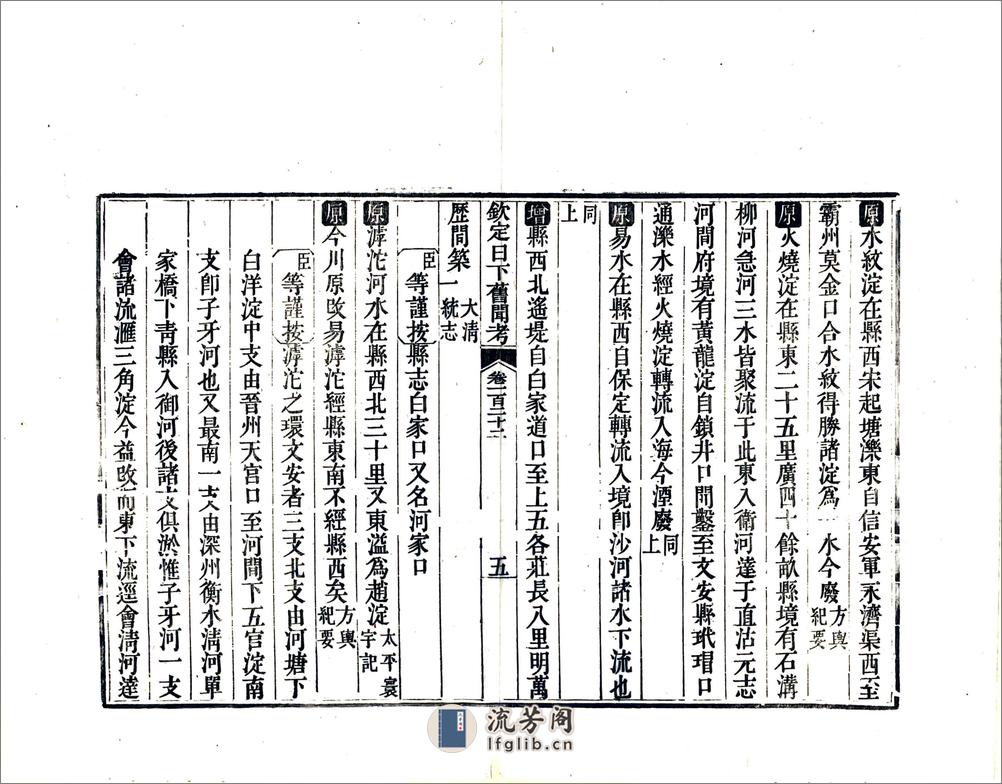 原水紋淀在縣西宋起塘濼東自信安軍永濟渠西至
霸州莫金口合水紋得勝諸淀為一水今廢方輿紀要
原火燒淀在縣東二十五里廣四十餘畝縣境有石溝
柳河急河三水皆聚流于此東入衛河達于直沽元志
河間府境有黃龍淀自鎖井口開鑿至文安縣玳瑁口
通濼水經火燒淀轉流入海今湮廢同上
原易水在縣西自保定轉流入境卽沙河諸水下流也
同上
增縣西北遙堤自白家道口至上五各莊長八里明萬
欽定日下舊聞考 卷一百二十二 五
歷間築大清一統志
臣等謹按縣志白家口又名河家口
原滹沱河水在縣西北三十里又東溢為趙淀太平寰宇記
原今川原改易滹沱經縣東南不經縣西矣方輿紀要
臣等謹按滹沱之環文安者三支北支由河塘下
白洋淀中支由晉州天宮口至河間下五官淀南
支卽子牙河也又最南一支由深州衡水清河單
家橋下青縣入御河後諸支俱淤惟子牙河一支
會諸流滙三角淀今益改而東下流逕會清河達
流芳阁
lfglib.cn